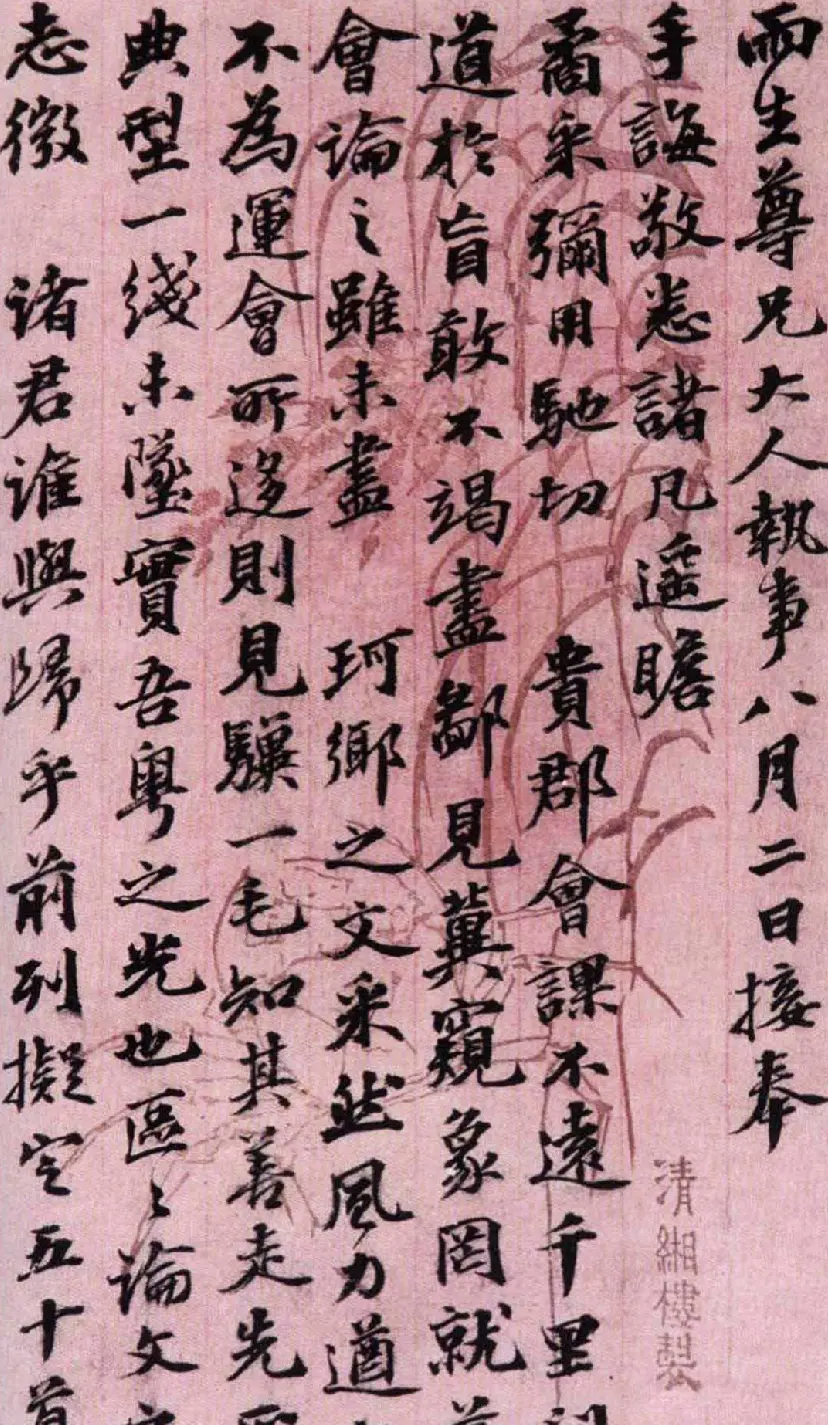 雨生尊兄大人執事八月二日接奉
手誨敬悉諸凡遥瞻
矞采彌用馳切　貴郡會課不遠千里
道於盲敢不竭盡鄙見冀窺象罔就
會論之雖未盡　珂鄉之文采然風力遒
不為運會所迻則見驥一毛知其善走先
典型一綫未墜實吾粤之光也區〻論文
志微　诸君誰與歸乎前列擬定五十首
清緗樓製